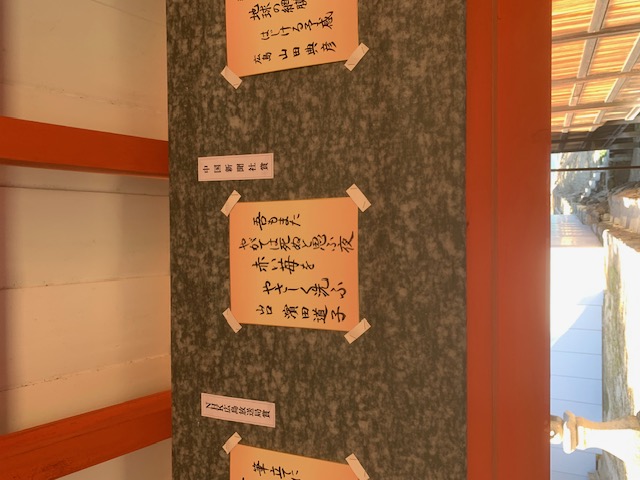 地球の網膜
はじける予感
広島 山田典彦
中国新聞社賞
吾もまた
やがては死ぬと思ふ夜
赤い苺を
やさしく洗ふ
山口 濱田道子
NHK広島放送局賞
筆立て